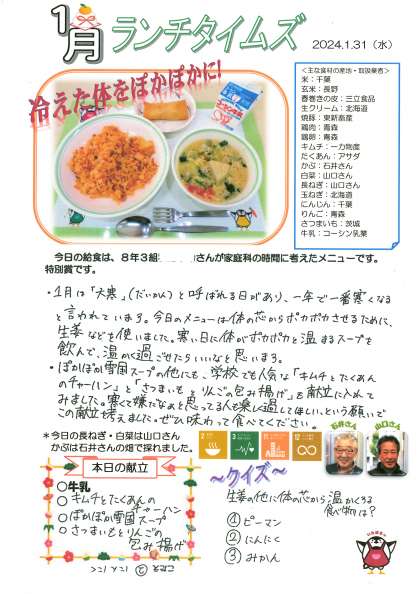 1月 ランチタイムズ
2024.1.31（水）
冷えた体をぽかぽかに!
＜主な食材の産地・取扱業者＞
米：千葉
玄米：長野
春巻きの皮：三立食品
生クリーム：北海道
焼豚：東新畜産
鶏肉：青森
鶏卵：青森
キムチ：一力物産
たくあん：アサダ
かぶ：石井さん
白菜：山口さん
長ねぎ：山口さん
玉ねぎ：北海道
にんじん：千葉
りんご：青森
さつまいも：茨城
牛乳：コーシン乳業
今日の給食は、８年３組 さんが家庭科の時間に考えたメニューです。
特別賞です。
・1月は「大寒」(だいかん)と呼ばれる日があり、一年で一番寒くなる
と言われています。今日のメニューは体の芯からポカポカさせるために、
生姜などを使いました。寒い日に体がポカポカと温まるスープを
飲んで、温かく過ごせたらいいなと思います。
・ぽかぽか雪国スープの他にも、学校でも人気な「キムチとたくあん
のチャーハン」と「さつまいもとりんごの包み揚げ」を献立に入れて
みました。寒くて嫌だなぁと思ってる人も楽しく過ごしてほしい、という願いで
この献立を考えました。ぜひ味わって食べてください。
＊今日の長ねぎ・白菜は山口さん
かぶは石井さんの畑で採れました。
石井さん
山口さん
本日の献立
○牛乳
○キムチとたくあんの
チャーハン
○ぽかぽか雪国スープ
○さつまいもとりんごの
包み揚げ
～クイズ～
生姜の他に体の芯から温かくなる
食べ物は?
①ピーマン
②にんにく
③みかん
こたえ ② にんにく